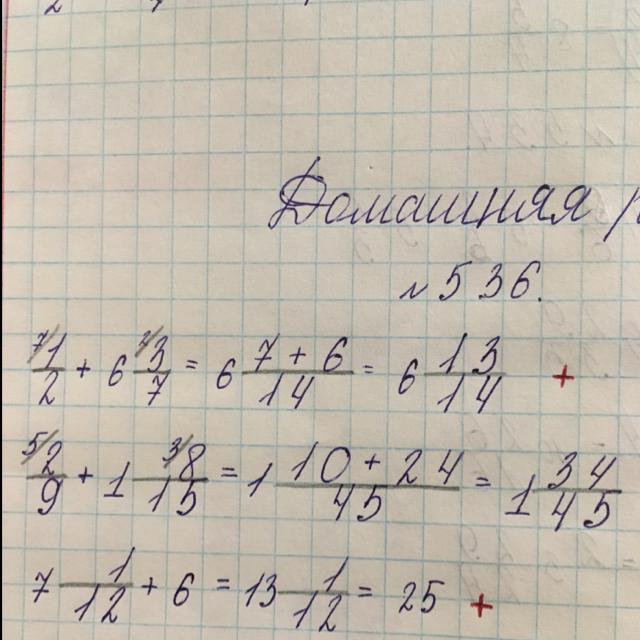 Домашняя
№ 536.
7/ 1/2 + 6 2/ 3/7 = 6 (7 + 6)/14 = 6 13/14 +
5/ 2/9 + 1 3/ 8/15 = 1 (10 + 24)/45 = 1 34/45
7 1/12 + 6 = 13 1/12 = 25 +